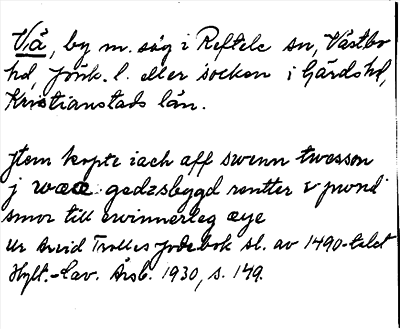 Vå, by m. såg i Reftele sn, Västbo
hd, Jönk. l. eller socken i Gärds hd,
Kristianstads län.
Jtem kopte iach aff swenn twesson
j wææ godzsbygd rentter v pund
smor till ewinnerleg æye
Ur Arvid Trolles jordebok sl. av 1490-talet
Hylt.-Cav. Årsb. 1930, s. 149.